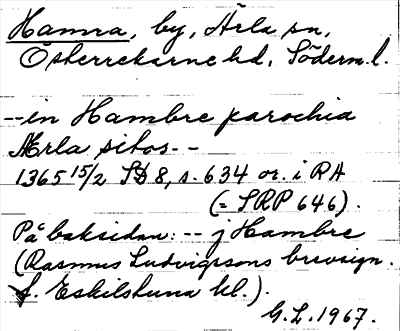 Hamra, by, Ärla sn,
Österrekarne hd, Söderm.l.
--in Hambre parochia
Ærla sitos--
1365 15/2 SD 8, s. 634 or. i RA
(= SRP 646).
På baksidan: -- j Hambre
(Rasmus Ludvigssons brevsign.
f. Eskilstuna kl.).
G.L. 1967.